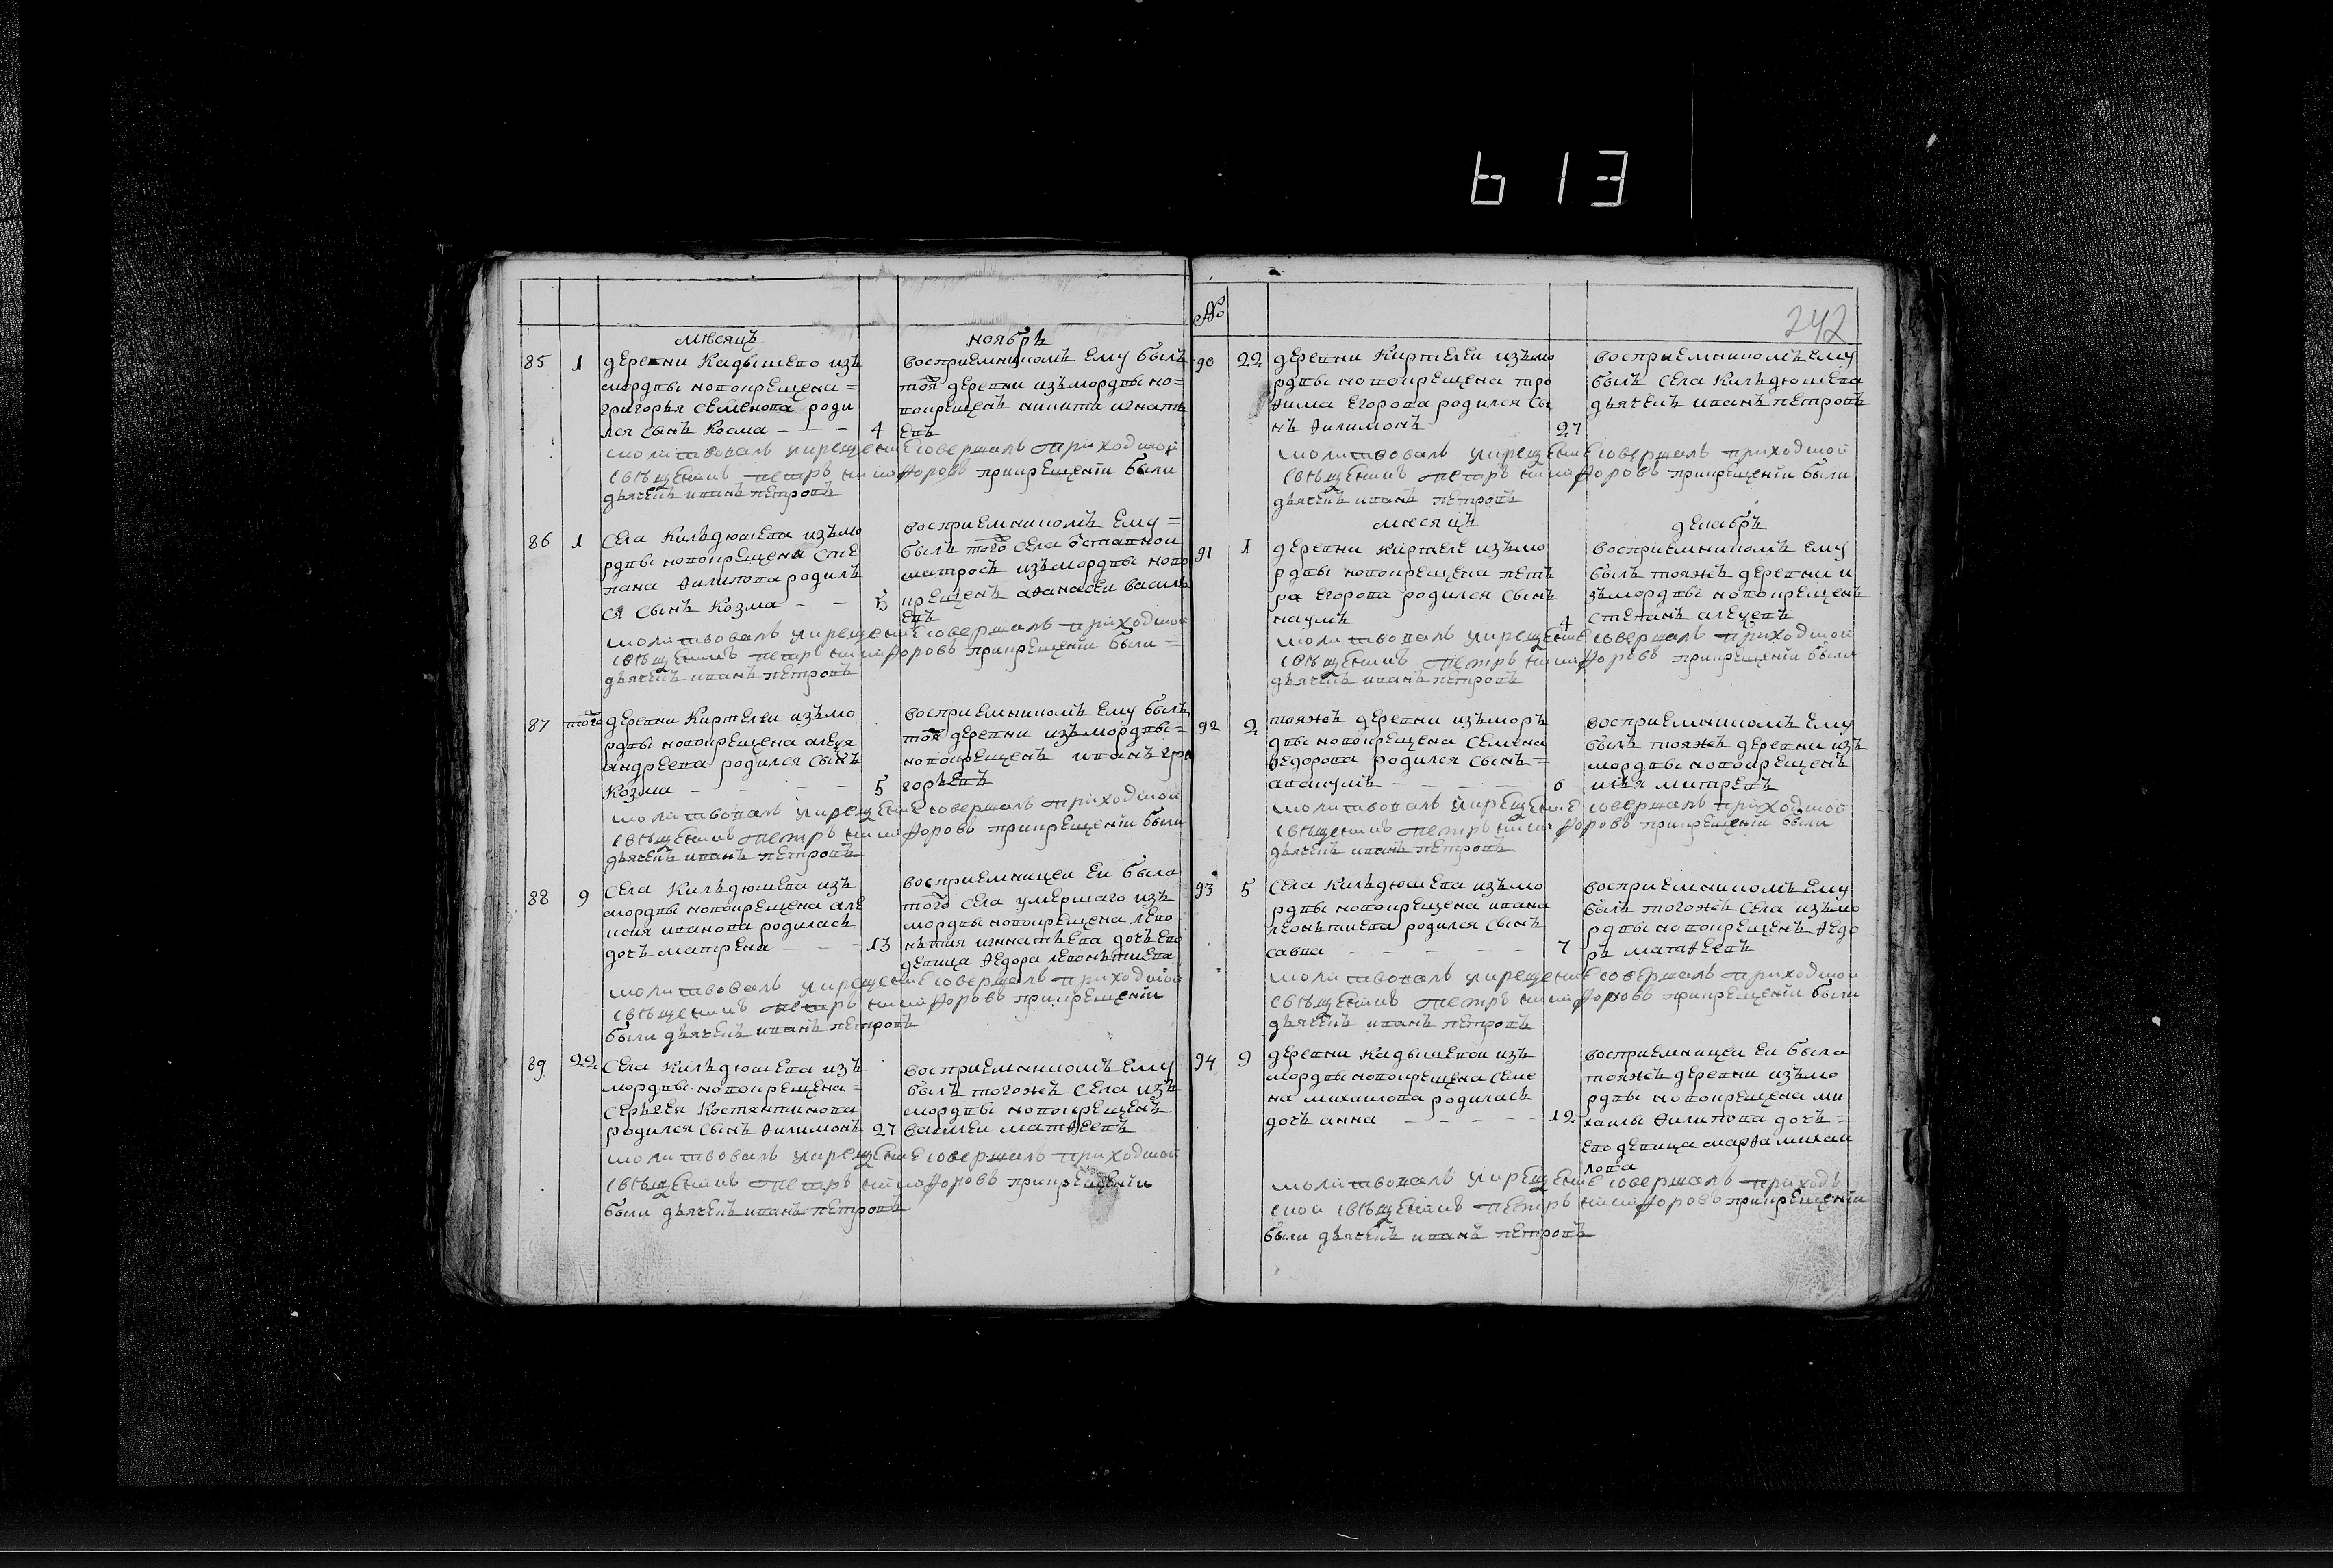 613
242
№
месяцъ ноябрь
85 1 деревни Кадышево изъ
мордвы новокрещена=
григорья семенова роди
лся сынъ Косма - - - 4
восприемникомъ ему былъ
тоя деревни изъ мордвы но=
вокрещенъ никита игнать
евъ
молитвовалъ икрещение совершалъ приходской
священникъ петръ никифоровъ прикрещении были
дьячекъ иванъ петровъ
86 1 Села Кильдюшева изъ мо
рдвы новокрещена сте
пана филипова родилъ
ся сынъ Козма - - 5
восприемникомъ ему=
былъ того села отставной
матросъ изъ мордвы ново
крещенъ афанасеи василь
евъ
молитвовалъ икрещение совершалъ приходской
священникъ петръ никифоровъ прикрещении были=
дьячекъ иванъ петровъ
87 того деревни Киртелеи изъ мо
рдвы новокрещена алеѯя
андреева родился сынъ
Козма - - - - 5
восприемникомъ ему былъ
тоя деревни изъ мордвы=
новокрещенъ иванъ гри
горьевъ
молитвовалъ икрещение совершалъ приходской
священникъ петръ никифоровъ прикрещении были
дьячекъ иванъ петровъ
88 9 Села Кильдюшева изъ
мордвы новокрещена але
ксия иванова родилась
дочь матрена - - - 13
восприемницеи еи была
того села умершаго изъ
мордвы новокрещена лево
нътия игнатьева дочь ево
девица федора левонътиева
молитвовалъ икрещение совершалъ приходской
священникъ петръ никифоровъ прикрещении
были дьячекъ иванъ петровъ
89 22 Села Кильдюшева изъ
мордвы новокрещена=
сергея Костянтинова
родился сынъ филимонъ 27
восприемникомъ ему
былъ тогожъ села изъ
мордвы новокрещенъ
василеи матфеевъ
молитвовалъ икрещение совершалъ приходской
священникъ петръ никифоровъ прикрещении
были дьячекъ иванъ петровъ
90 22 деревни Киртелеи изъ мо
рдвы новокрещена тро
фима егорова родился сы
нъ филимонъ 27
восприемникомъ ему
былъ села Кильдюшева
дьячекъ иванъ петровъ
молитвовалъ икрещение совершалъ приходской
священникъ петръ никифоровъ прикрещении были
дьячекъ иванъ петровъ
месяцъ декабрь
91 1 деревни Киртеле изъ мо
рдвы новокрещена пет
ра егорова родился сынъ
наумъ 4
восприемникомъ ему
былъ тояжъ деревни и
зъ мордвы новокрещенъ
степанъ алеѯеевъ
молитвовалъ икрещение совершалъ приходской
священникъ петръ никифоровъ прикрещении были
дьячекъ иванъ петровъ
92 2 тояжъ деревни изъ моръ
двы новокрещена семена
федорова родился сынъ=
авакумъ - - - - 6
восприемникомъ ему
былъ тояжъ деревни изъ
мордвы новокрещенъ
илья митревъ
молитвовалъ икрещение совершалъ приходской
священникъ петръ никифоровъ прикрещении были
дьячекъ иванъ петровъ
93 5 Села Кильдюшева изъ мо
рдвы новокрещена ивана
леонътиева родился сынъ
савва - - - - 7
восприемникомъ ему
былъ тогожъ села изъ мо
рдвы новокрещенъ федо
ръ матфеевъ
молитвовалъ икрещение совершалъ приходской
священникъ петръ никифоровъ прикрещении были
дьячекъ иванъ петровъ
94 9 деревни Кадышевои изъ
мордвы новокрещена семе
на михаилова родилась
дочь анна - - - - 12
восприемницеи еи была
тояжъ деревни изъ мо
рдвы новокрещена ми
хаилы филипова дочь=
ево девица марфа михаи
лова
молитвовалъ икрещение совершалъ приходъ
ской священникъ петръ никифоровъ прикрещении
были дьячекъ иванъ петровъ